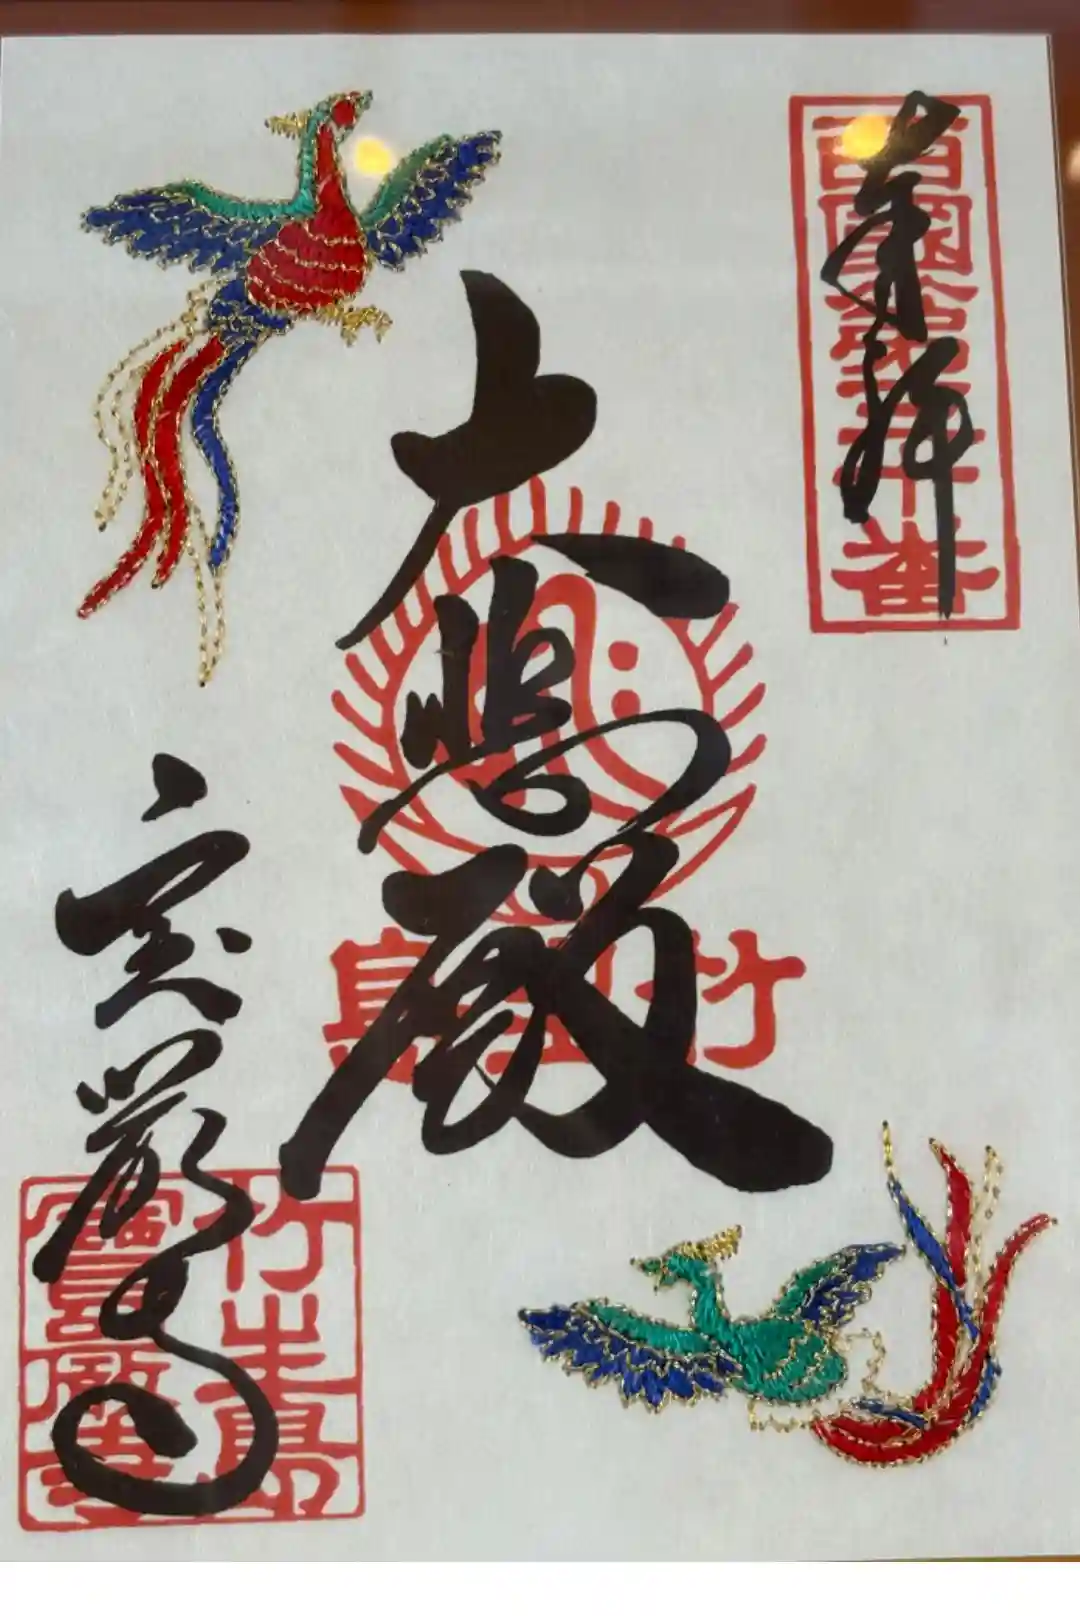 奉拝
西国第三十番
大悲殿
竹生島
宝厳寺
竹生島
寶嚴寺